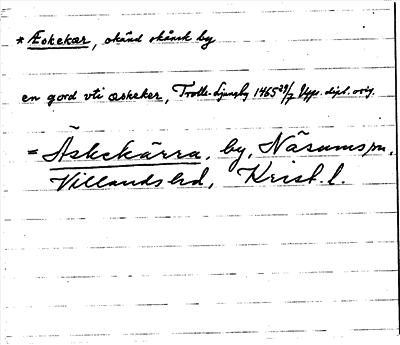 * Æskekær, okänd skånsk by
en gord vti æskeker, Trolle-Ljungby 1465 29/7 Upps. dipl. orig.
= Äskekärra, by, Näsums sn,
Villands hd, Krist. l.